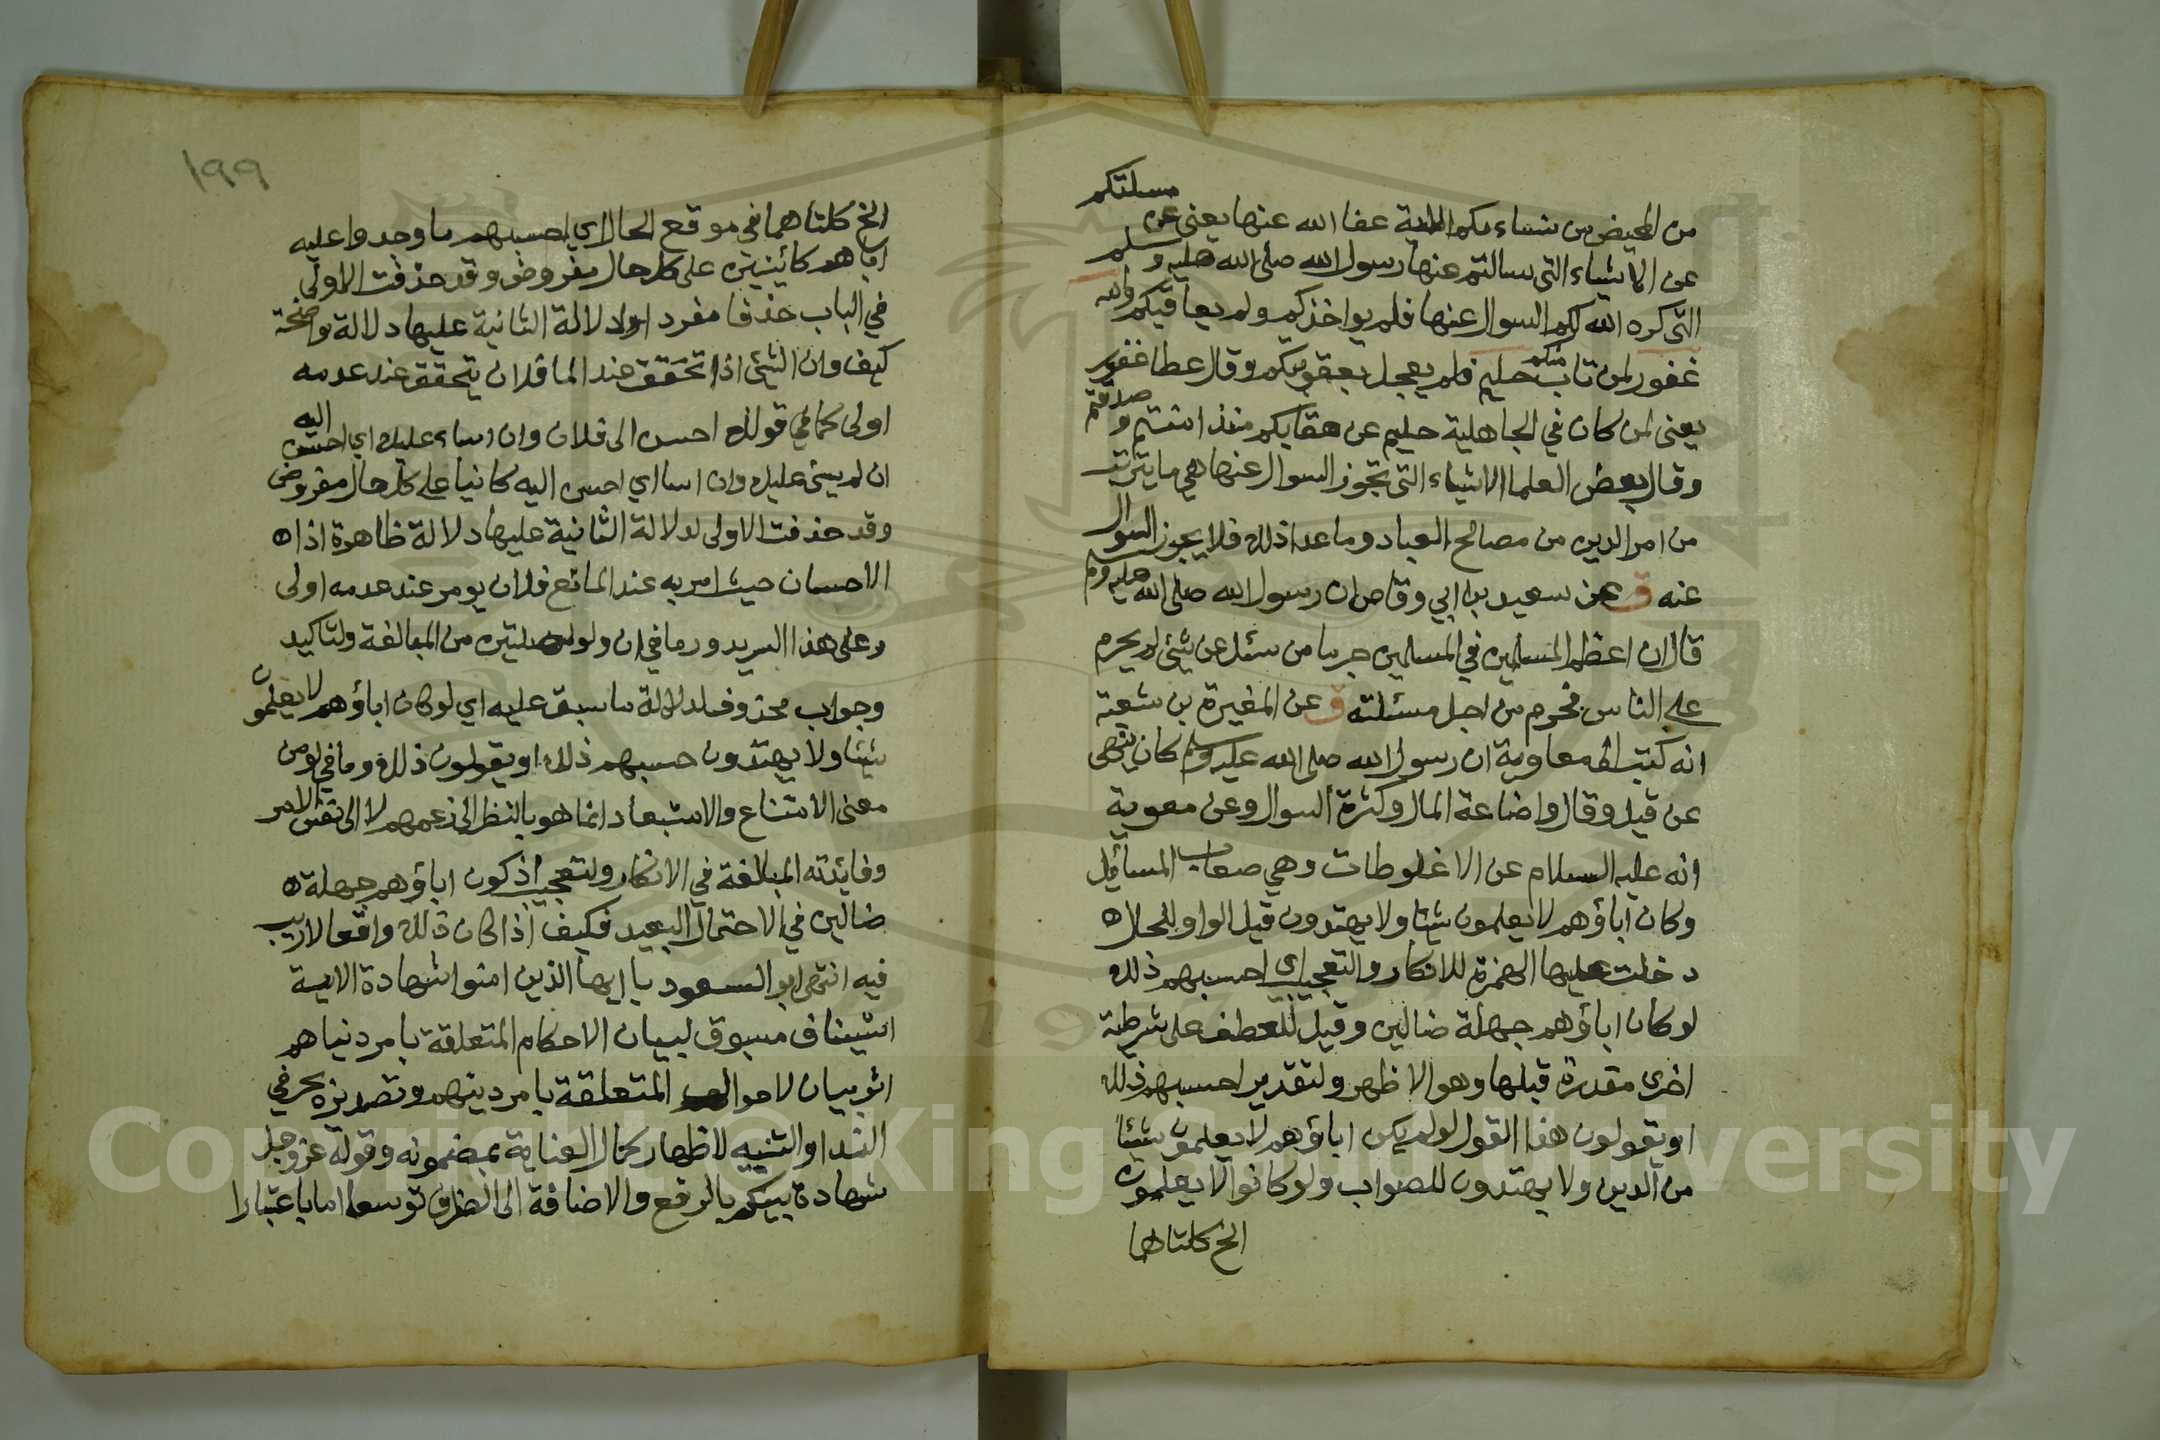 من المحيض من نساءكم الاية عفا الله عنها يعني عن مسئلتكم
عن الاشياء التي سالتم عنها رسول الله صلى الله عليه وسلم
التي كره الله لكم السوال عنها فلم يواخذكم ولم يعاقبكم والله
غفور لمن تاب منكم حليم فلم يعجل بعقوبتكم وقال عطا غفور
يعني لمن كان في الجاهلية حليم عن عقابكم منذ امنتم وصدقتم
وقال بعض العلما الاشياء التي تجوز السوال عنها هي ما يترتب
من امر الدين من مصالح العباد وما عدا ذلك فلا يجوز السوال
عنه ق عن سعيد بن ابي وقاص ان رسول الله صلى الله عليه وسلم
قال ان اعظم المسلمين في المسلمين جرما من سئل عن شيئ لم يحرم
على الناس فحرم من اجل مسئلته ق عن المغيرة بن شعبة
انه كتب الى معاوية ان رسول الله صلى الله عليه وسلم كان ينهى
عن قيل وقال واضاعة المال وكثرة السوال وعن معوية
انه عليه السلام عن الاغلوطات وهي صعاب المسائل
وكان اباؤهم لا يعلمون شيئا ولا يهتدون قيل الواو للحال ه
دخلت عليها الهمزة للانكار والتعجيب اي احسبهم ذلك
لو كان اباؤهم جهلة ضالين وقيل للعطف على شرطية
اخرى مقدرة قبلها وهو الاظهر ولتقدير احسبهم ذلك
او يقولون هذا القول لو لم يكن اباؤهم لا يعلمون شيئا
من الدين ولا يهتدون للصواب ولو كانوا لا يعلمون
الخ كلتاها
١٩٩
الخ كلتاهما في موقع الحال اي احسبهم ما وجدوا عليه
اباهم كائنين على كل حال مفروض وقد حذفت الاولى
في الباب حذفا مفردا لدلالة الثانية عليها دلالة واضحة
كيف وان الشيئ اذا تحقق عند المانع فلان يتحقق عند عدمه
اولى كما في قولك احسن الى فلان وان اساء عليك اي احسن اليه
ان لم يسئ عليك وان اسا اي احسن اليه كائنا على كل حال مفروض
وقد حذفت الاولى لدلالة الثانية عليها دلالة ظاهرة اذا ه
الاحسان حيث امر به عند المانع فلان يومر عند عدمه اولى
وعلى هذا السر يدور ما في ان ولو الوصليتين من المبالغة ولتاكيد
وجواب محذوف لدلالة ما سبق عليه اي لو كان اباؤهم لا يعلمون
شيئا ولا يهتدون حسبهم ذلك او يقولون ذلك وما في لو من
معنى الامتناع والاستبعاد انما هو بالنظر الى زعمهم لا الى نفس الامر
وفائدته المبالغة في الانكار ولتعجيب اذ كون اباؤهم جهلة ه
ضالين في الاحتمال البعيد فكيف اذا كان ذلك واقعا لا ريب
فيه انتهى ابو السعود يا ايها الذين امنوا شهادة الاية
استيناف مسوق لبيان الاحكام المتعلقة بامر دنياهم
اثر بيان لاحوال المتعلقة بامر دينهم وتصديره بحرفي
الندا والتنبيه لاظهار كمال العناية بمضمونه وقوله عز وجل
شهادة بينكم بالرفع والاضافة الى الظرف توسعا اما باعتبارا
Copyright © King Saud University